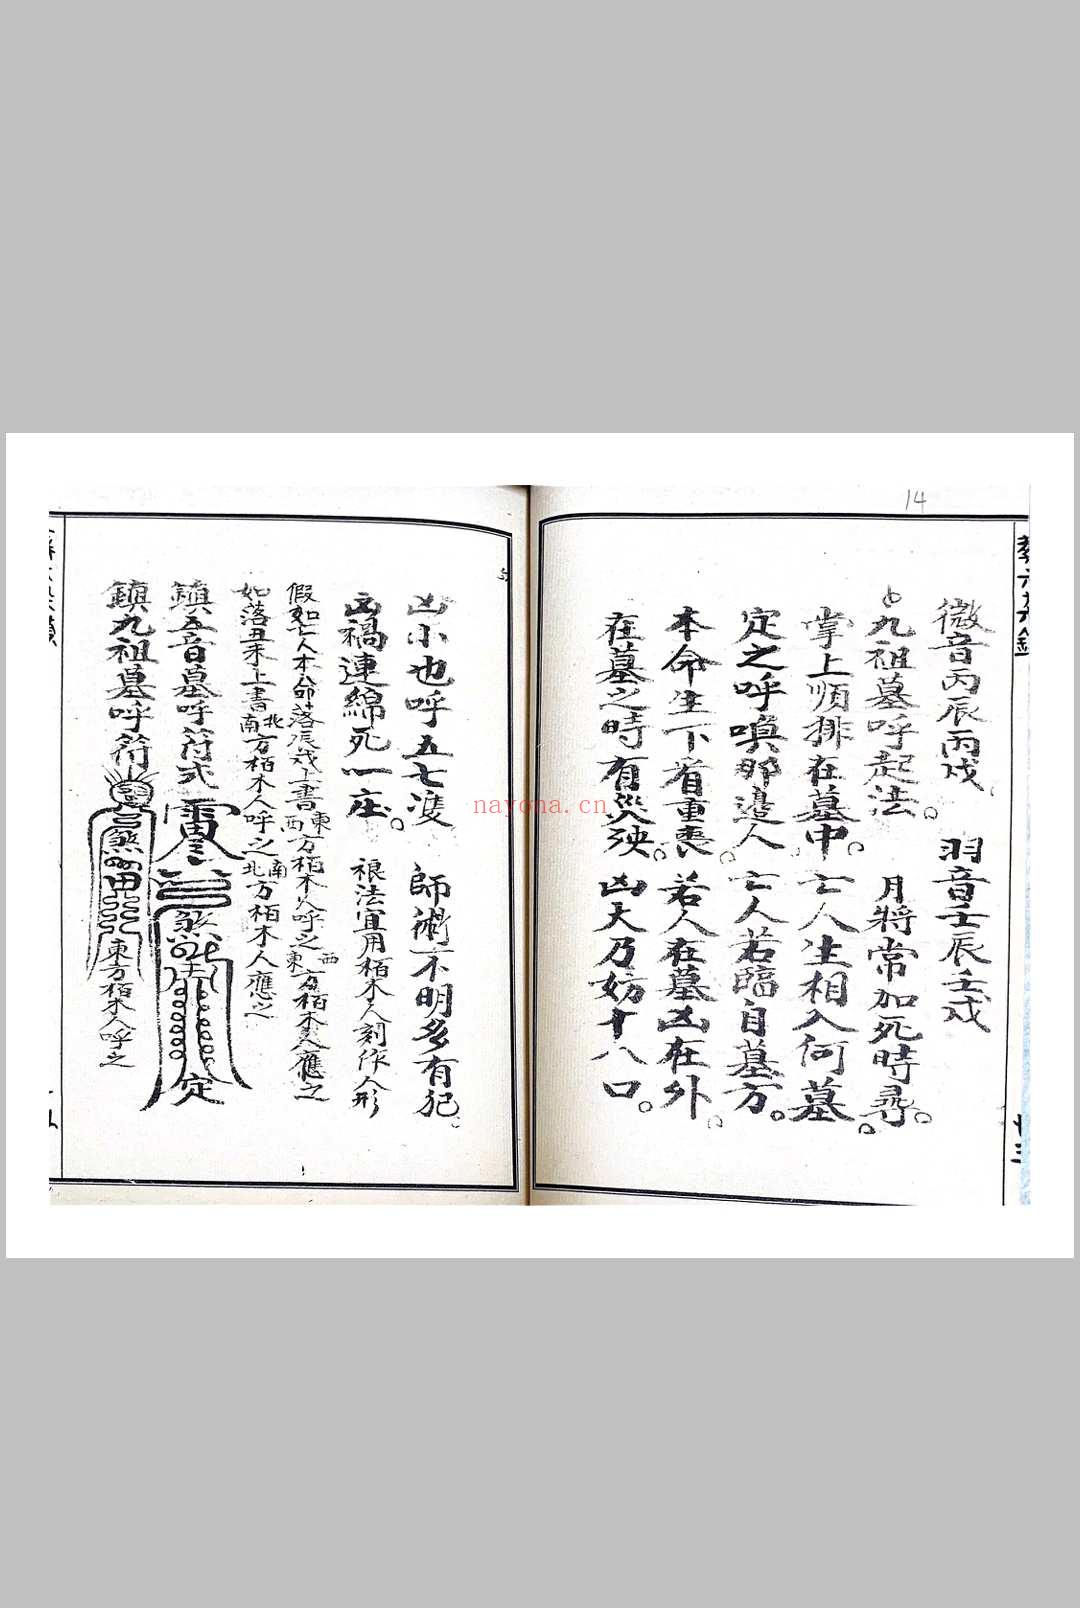 14
微音丙辰丙戌 羽音壬辰壬戌
九祖墓呼起法。 月將常加死時尋。
掌上順排在墓中。 亡人生相入何墓。
定之呼喚那邊人。 亡人若臨自墓方。
本命生下看重喪。 若人在墓凶在外。
在墓之時有災殃。 凶大乃妨十八口。
凶小也呼五七隻 師術不明多有犯。
凶禍連綿死一座。 禳法宜用栢木人刻作人形
假如亡人本命落辰戌上書東西方栢木人呼之西東方栢木人應之
如落丑未上書北南方栢木人呼之南北方栢木人應之
鎮五音墓呼符式 煞 定
鎮九祖墓呼符 煞 東方栢木人呼之
nayona.cn